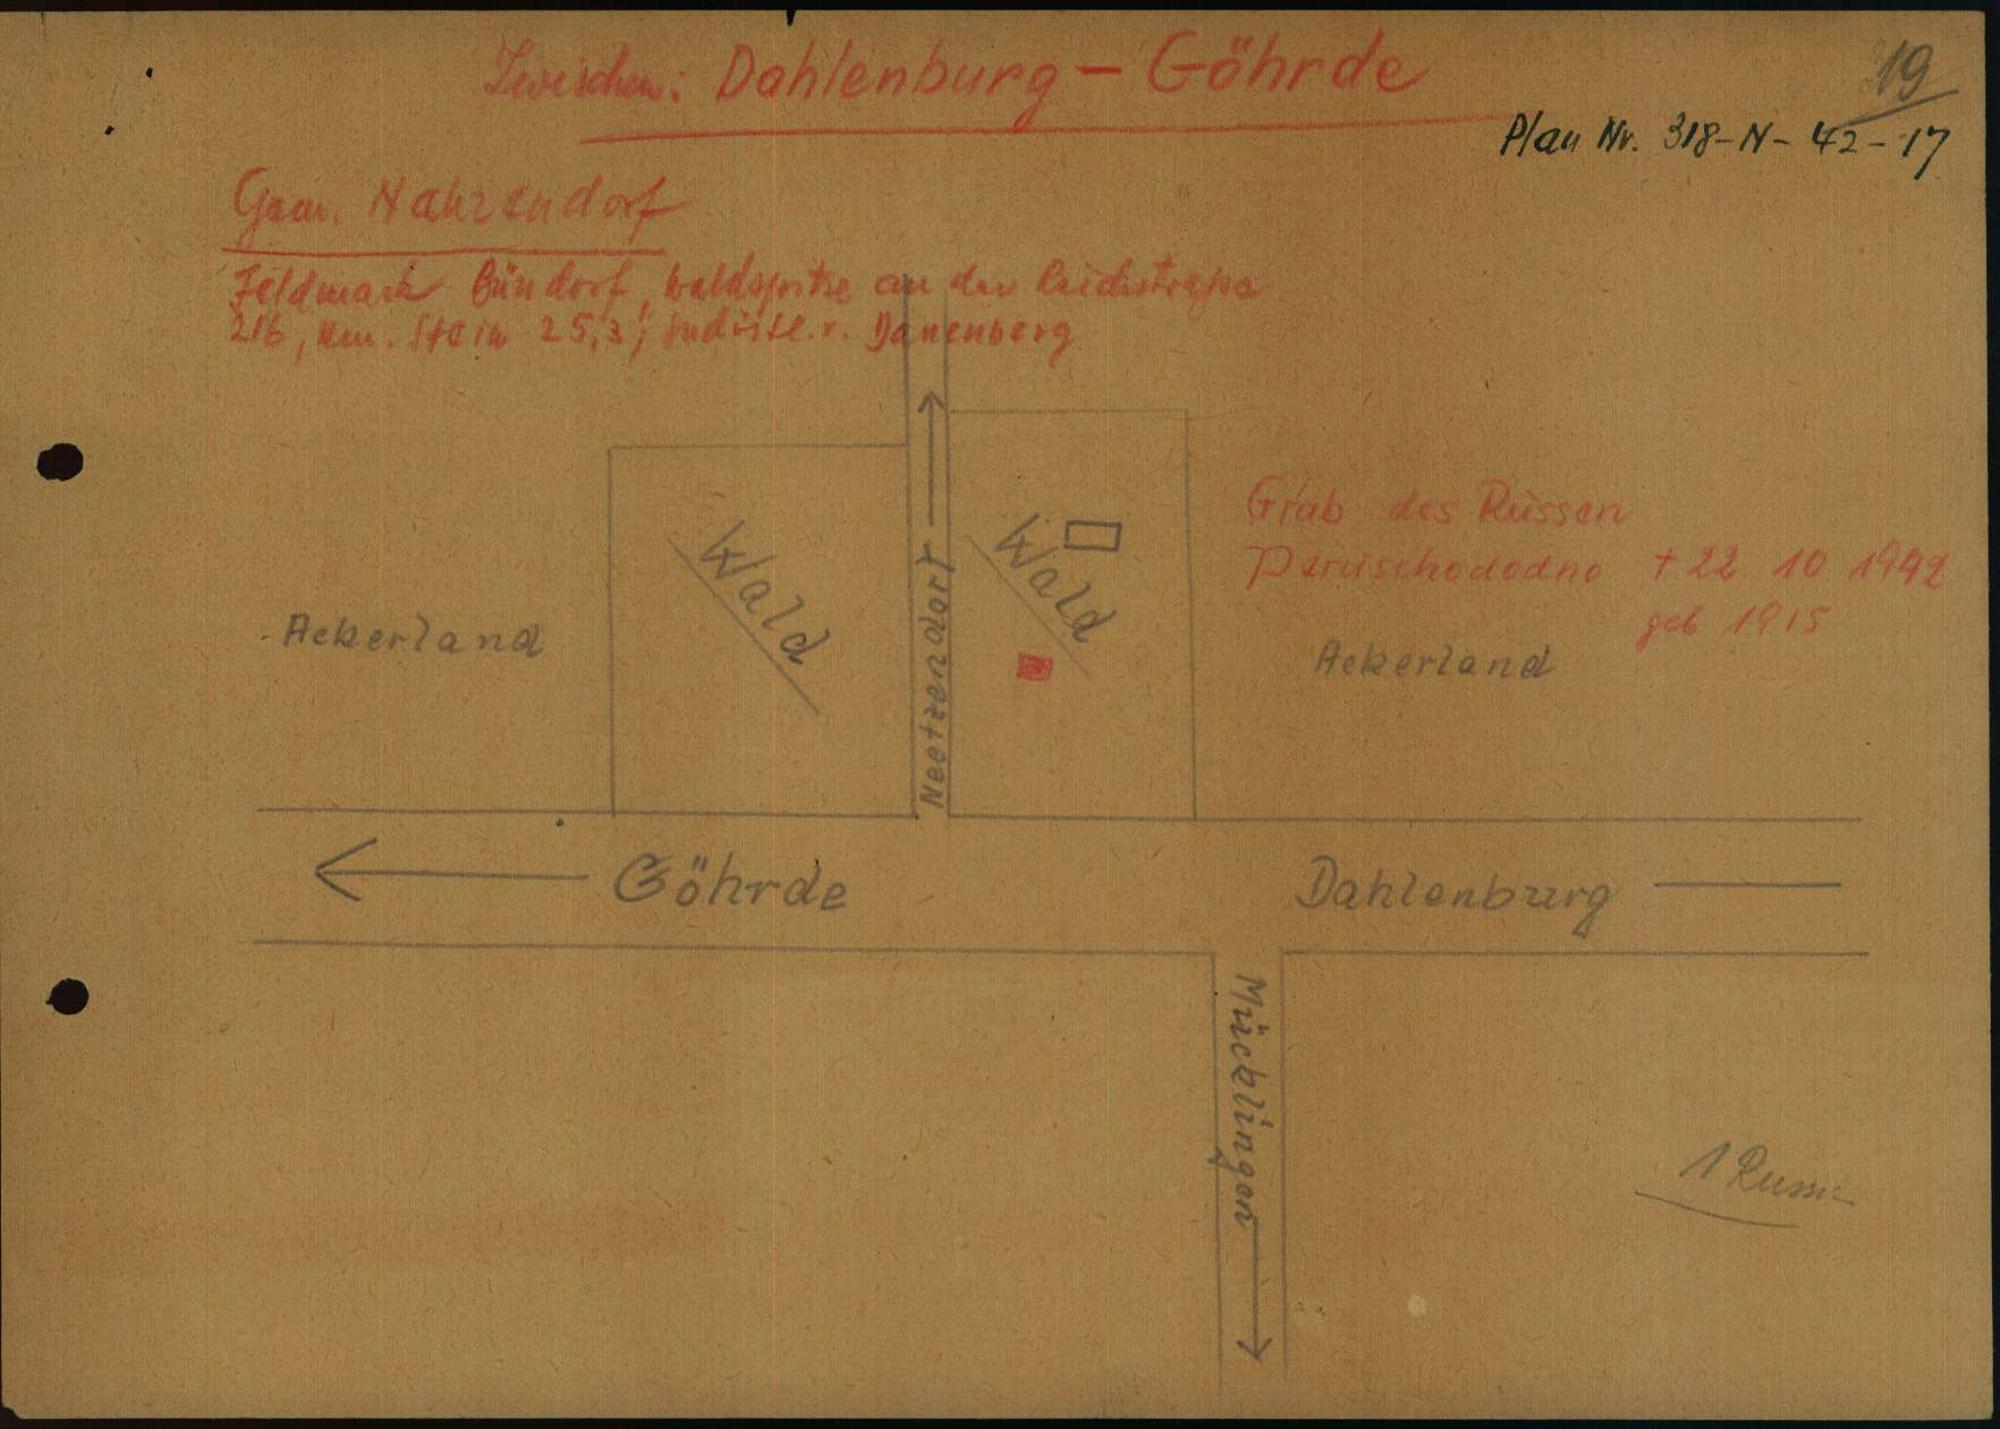 Zwischen: Dahlenburg - Göhrde
19
Plan Nr. 318-N-42-17
Gem. Nahrendorf
Feldmark Bündorf, Waldspitze an der Reichstraße
216, Km. Stein 25,3, Danenberg
Grab des Russen
+ 22 10 1942
geb 1915
Wald
Wald
Neetzendorf
Ackerland
Ackerland
Göhrde
Dahlenburg
Mücklingen
1 Russe